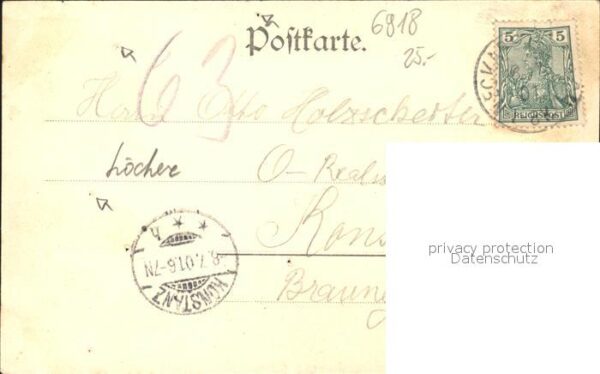 6918
Postkarte.
25.-
5 5
REICHSPOST
63
Herrn Otto Holzscheiter
Löcher
O-Real
Kons
Braun
KONSTANZ
8.7.01.6-7N
privacy protection
Datenschutz